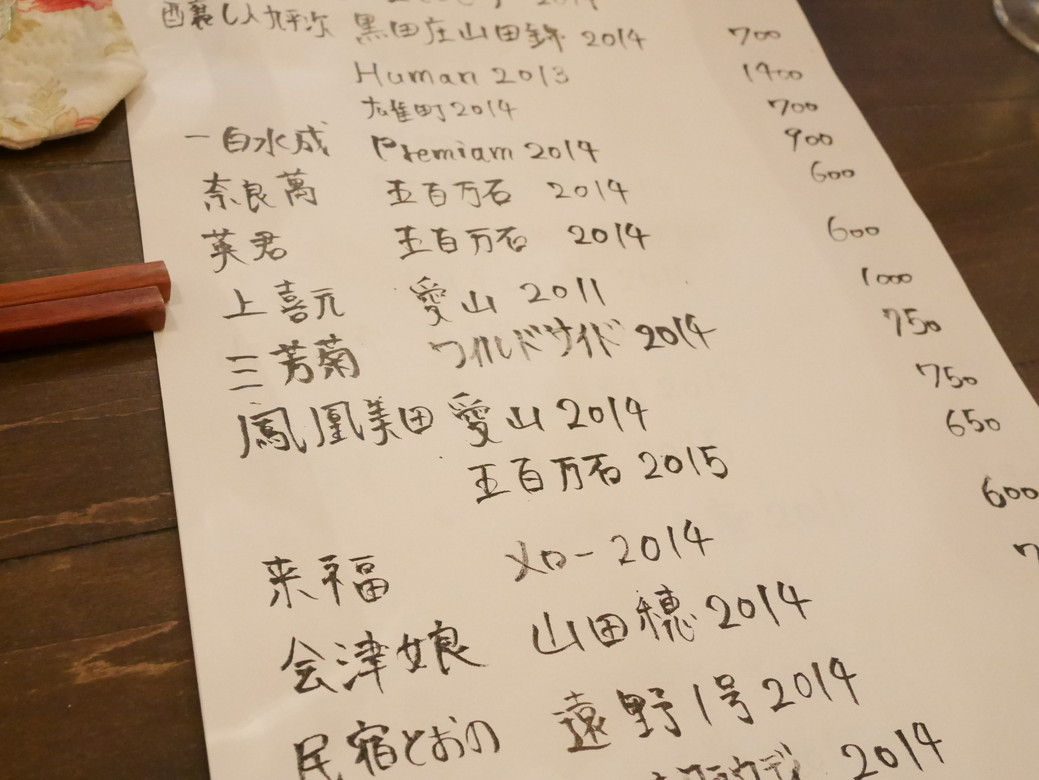 2014
醸し人九平次 黒田庄山田錦 2014 700
Human 2013 1400
雄町 2014 700
一白水成 Premiam 2014 900
奈良萬 五百万石 2014 600
英君 五百万石 2014 600
上喜元 愛山 2011 1000
三芳菊 ワイルドサイド 2014 750
鳳凰美田 愛山 2014 750
五百万石 2015 650
来福 メロー 2014 600
会津娘 山田穂 2014 7
民宿とおの 遠野1号 2014
2014